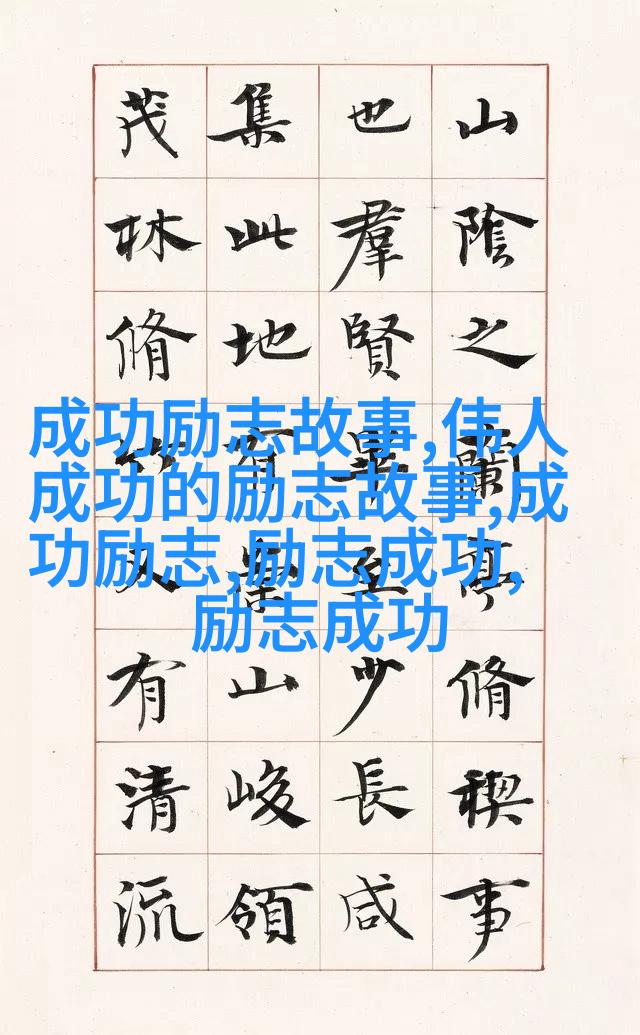 山陰之蘭亭脩禊事
也羣賢畢至少長咸
集此地有崇山峻領
茂林脩竹又有清流
成功励志故事,伟人
成功的励志故事,成
功励志,励志成功,
励志成功